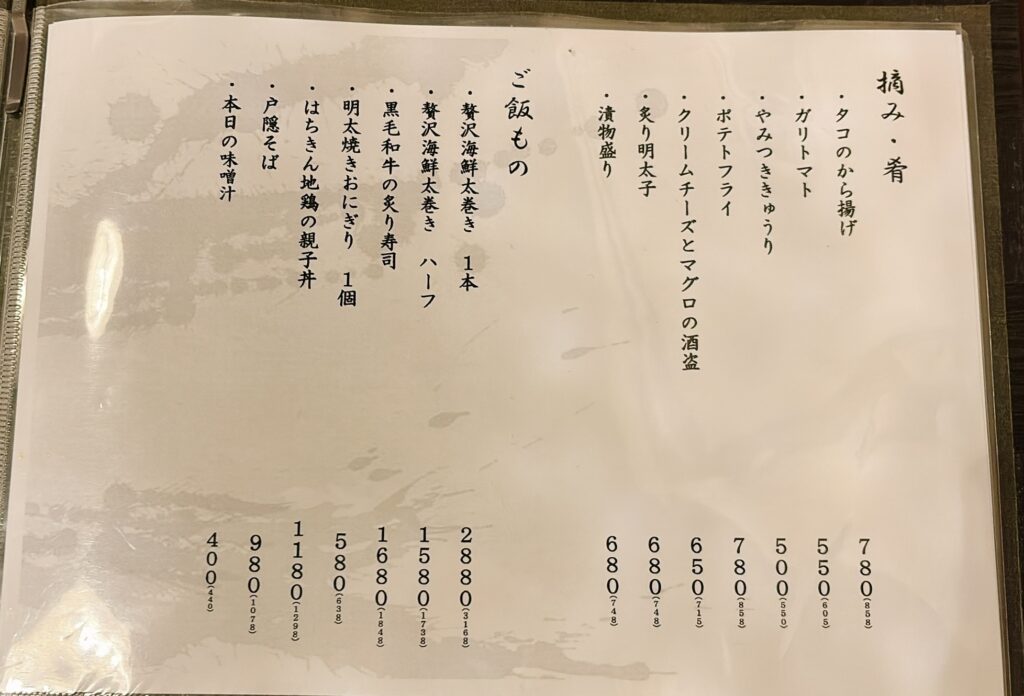 摘み・肴
・タコのから揚げ 780(858)
・ガリトマト 550(605)
・やみつききゅうり 500(550)
・ポテトフライ 780(858)
・クリームチーズとマグロの酒盗 650(715)
・炙り明太子 680(748)
・漬物盛り 680(748)
ご飯もの
・贅沢海鮮太巻き 1本 2880(3168)
・贅沢海鮮太巻き ハーフ 1580(1738)
・黒毛和牛の炙り寿司 1680(1848)
・明太焼きおにぎり 1個 580(638)
・はちきん地鶏の親子丼 1180(1298)
・戸隠そば 980(1078)
・本日の味噌汁 400(440)